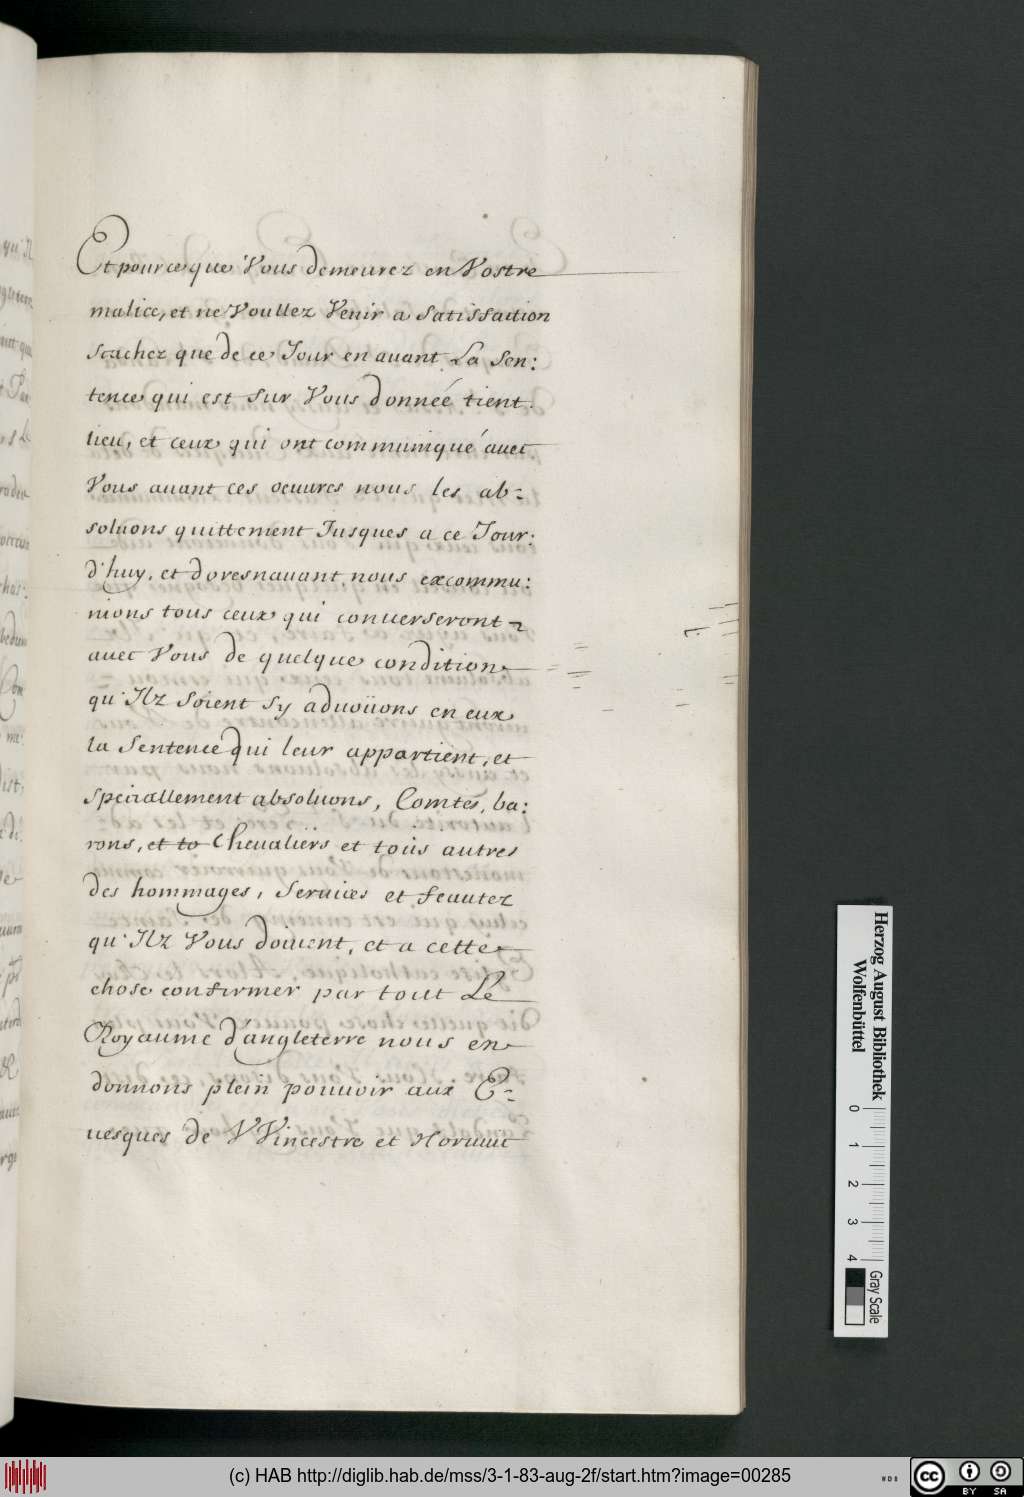 Et pource que Vous demeurez en Vostre
malice, et ne Voullez Venir a satisfaction
scachez que de ce Jour en auant La Sen:
tence qui est sur Vous donneé tient
lieu, et ceux qui ont communiqué auec
Vous auant ces oeuures nous les ab-
soluons quittement Jusques a ce Jour:
d'huy, et doresnauant nous excommu:
nions tous ceux qui conuerseront
auec Vous de quelque condition
qu'Ilz soient sy aduoüons en eux
la Sentence qui leur appartient, et
speciallement absoluons, Comtes, ba:
rons, et to Cheualiers et tous autres
des hommages, Seruices et feautez
qu'Ilz Vous doiuent, et a cette
chose confirmer par tout Le
Royaume d'angleterre nous en
donnons plein pouuoir aux E-
uesques de VVincestre et Noruuic
Herzog August Bibliothek
Wolfenbüttel
0 1 2 3 4
Gray Scale
(c) HAB http://diglib.hab.de/mss/3-1-83-aug-2f/start.htm?image=00285
WDB
cc
BY SA